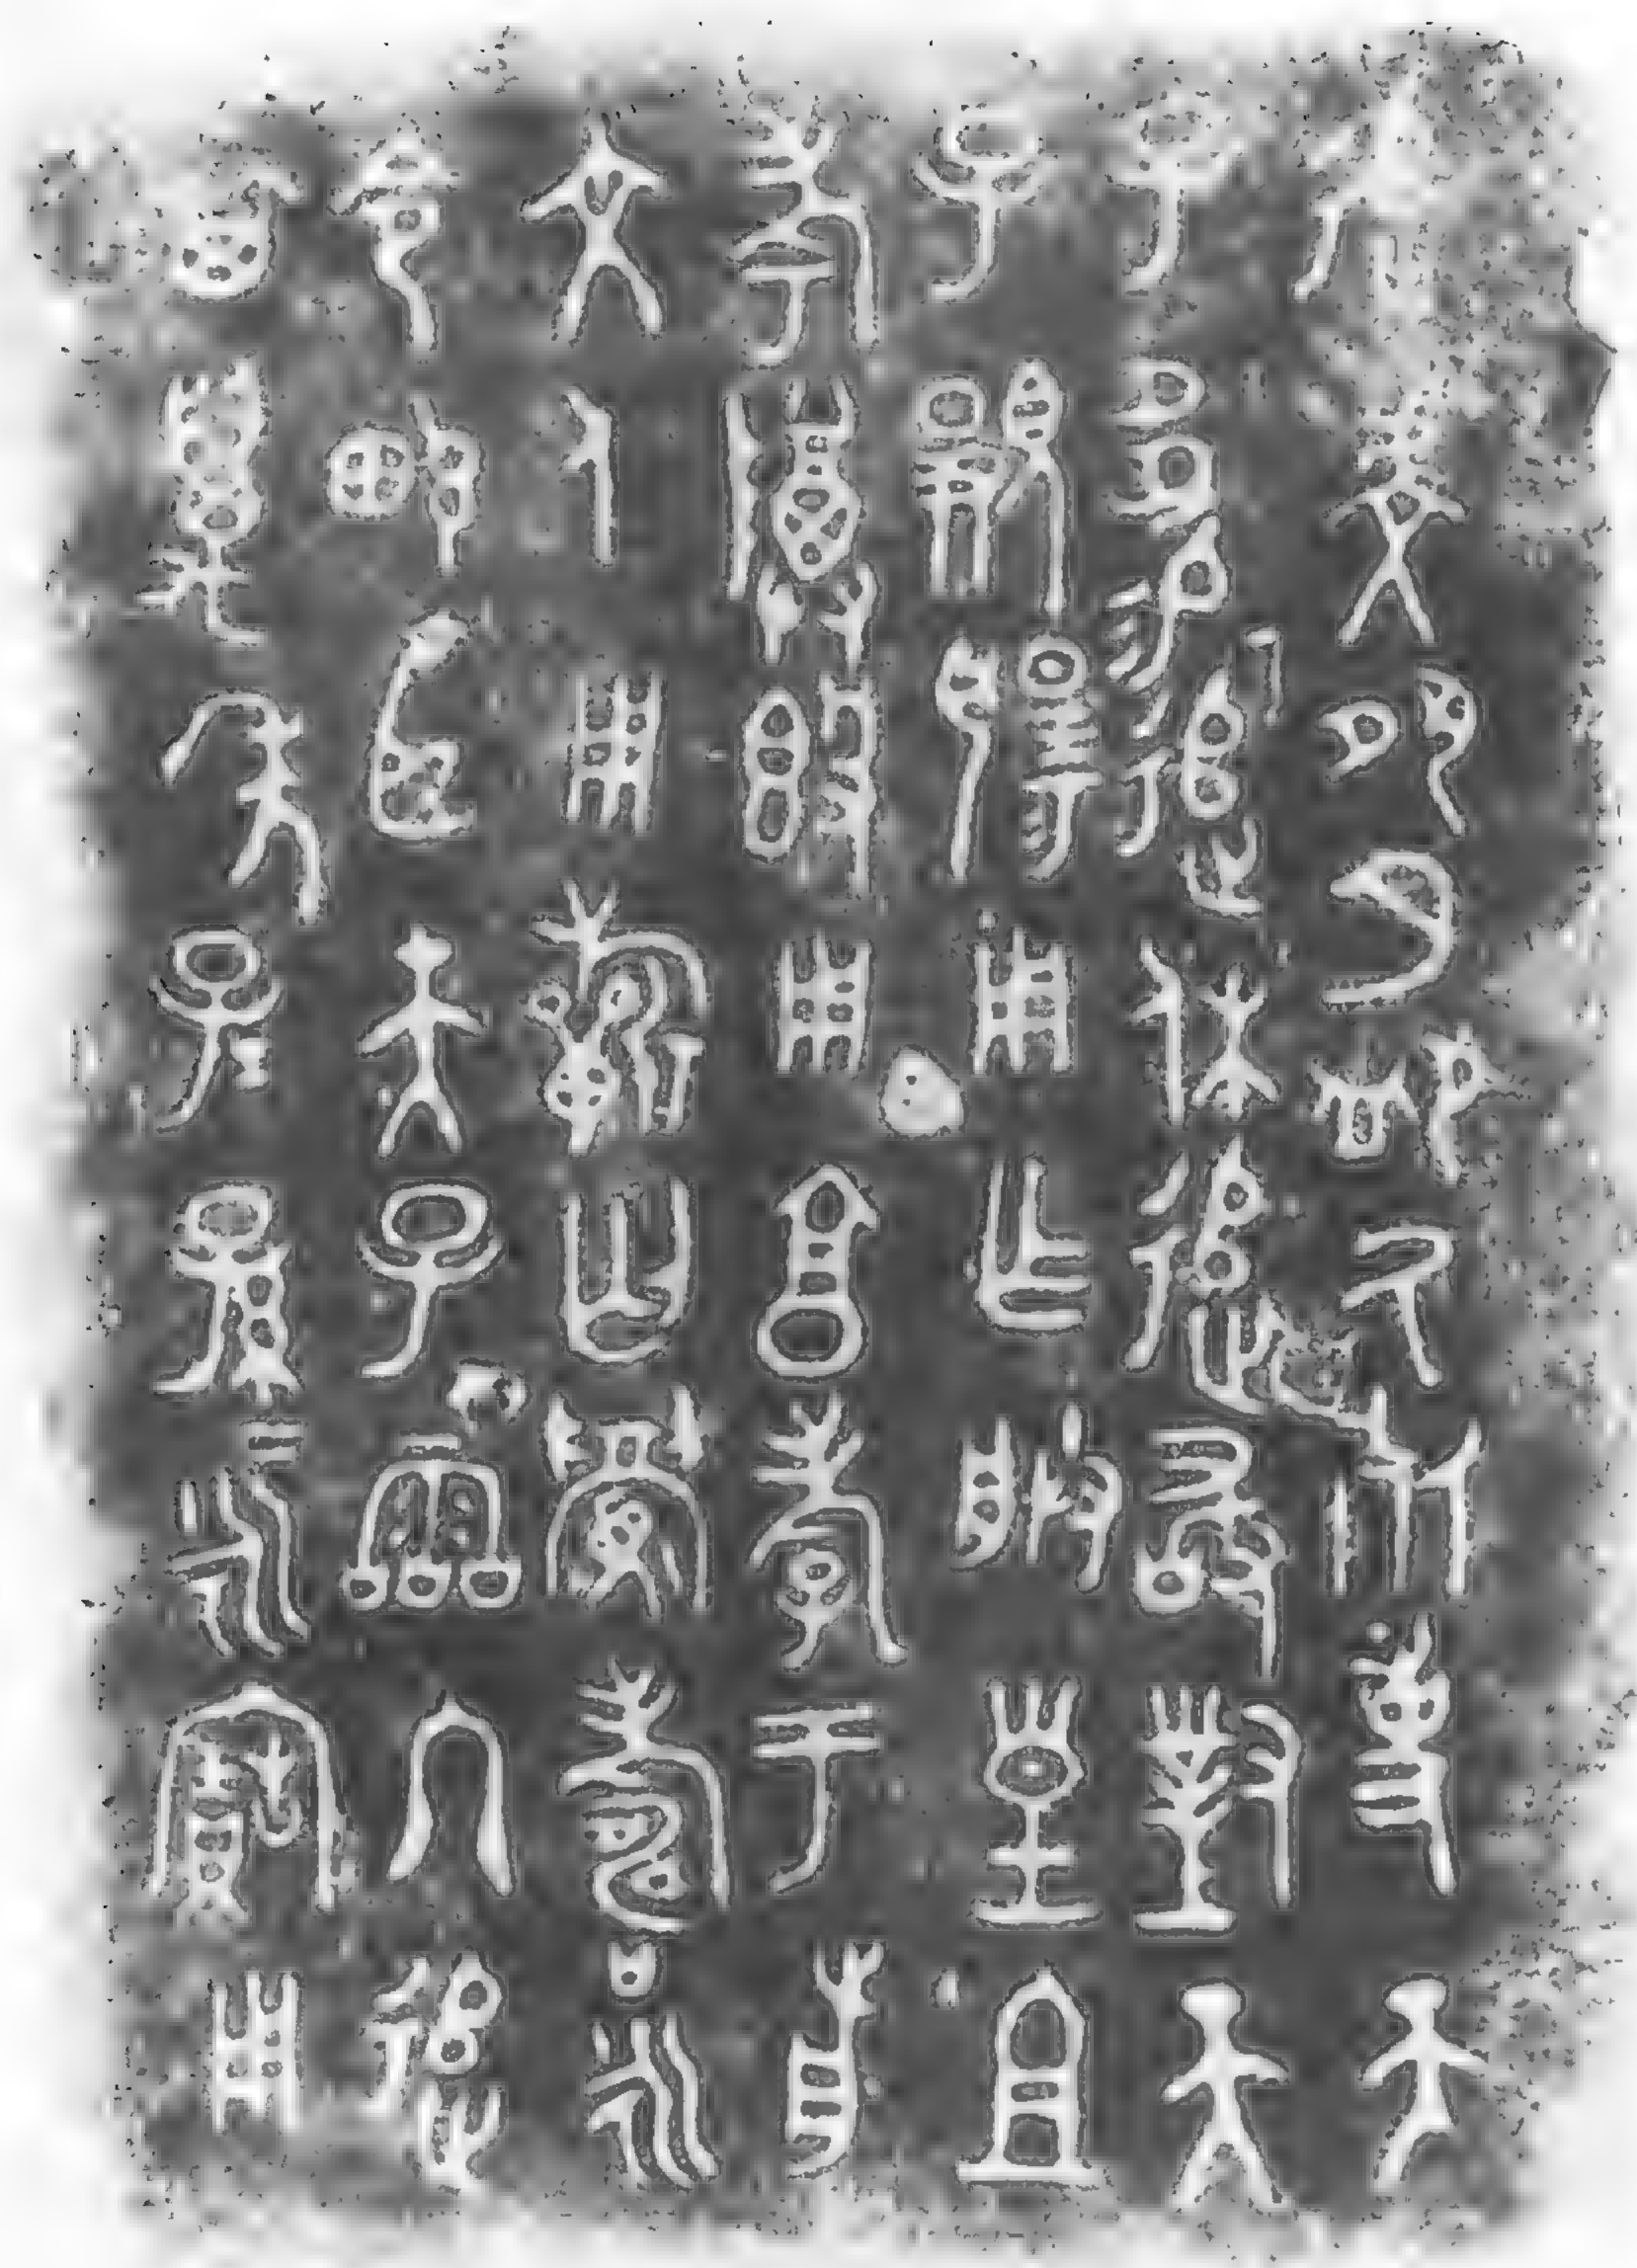 追虔夙夕卹氒死事天
子多易追休追敢對天
子顯揚用乍朕皇且
考尊簋用享孝于前
文人用祈匄眉壽永
令畯臣天子霝冬追
其萬年子=孫=永寶用